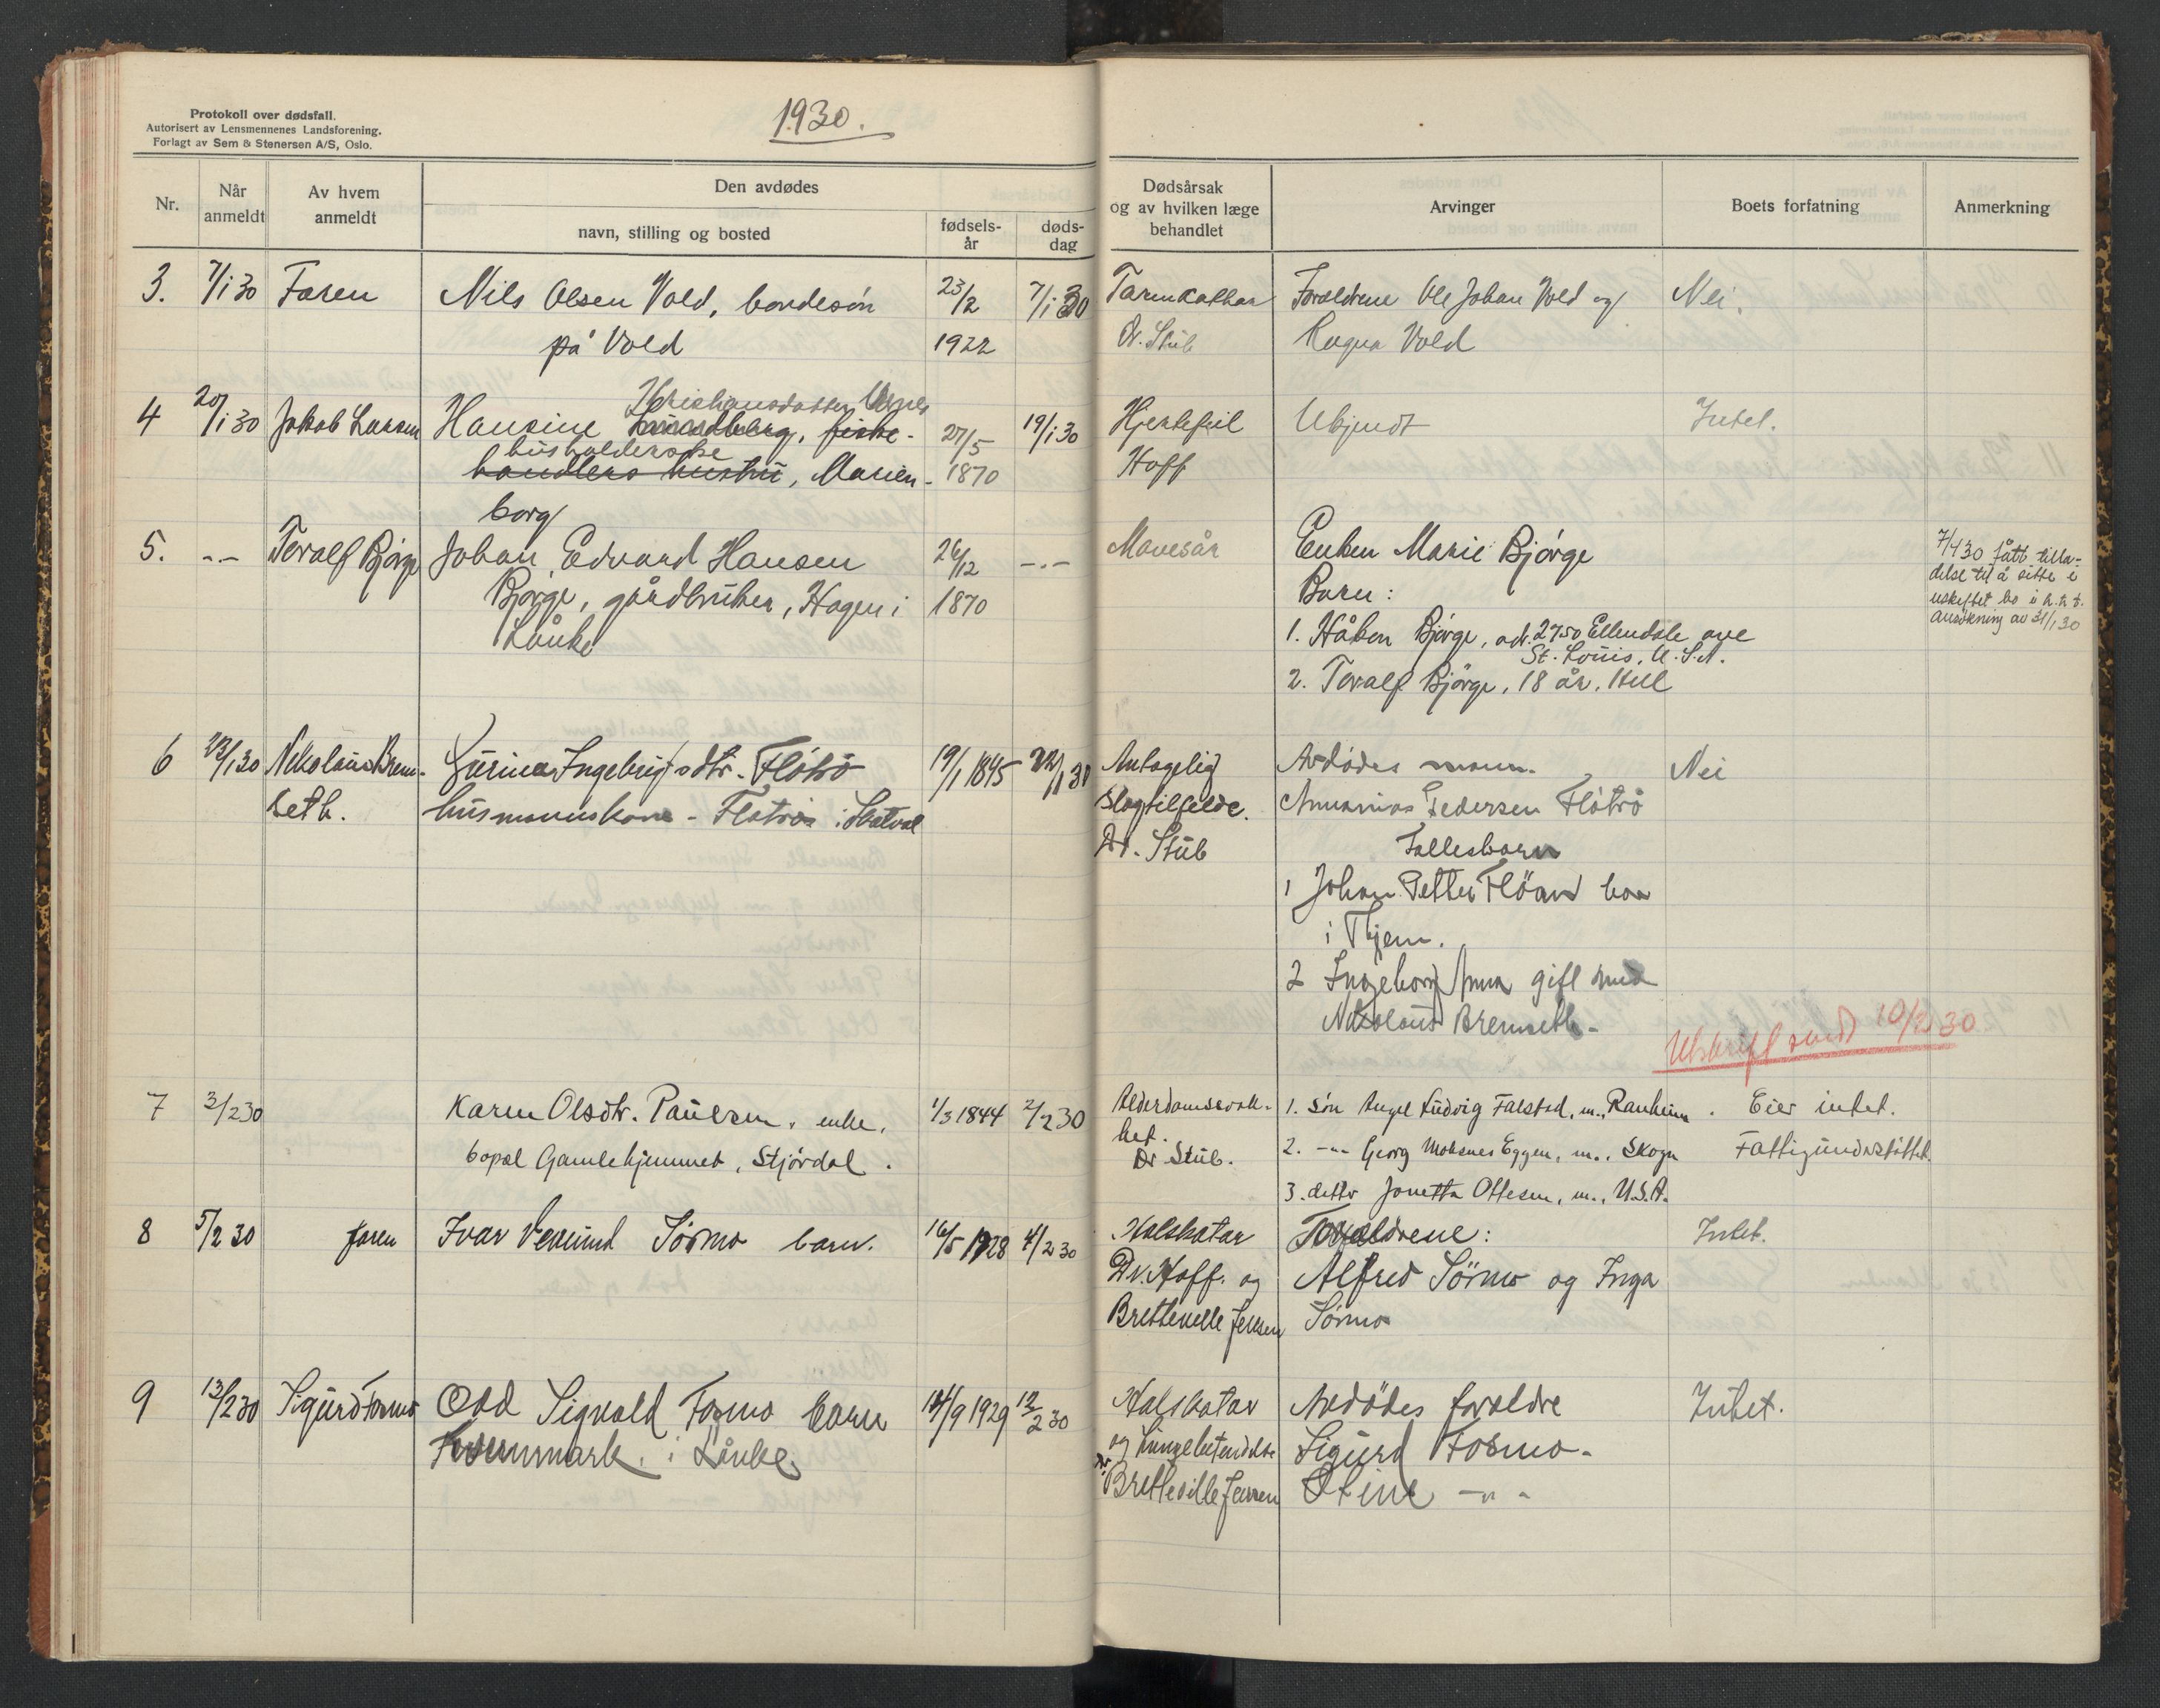 Protokoll over dødsfall.
Autorisert av Lensmennenes Landsforening.
Forlagt av Sem & Stenersen A/S, Oslo.
1930.
Nr.
Når anmeldt
Av hvem anmeldt
Den avdødes
navn, stilling og bosted
fødsels-år
døds-dag
Dødsårsak og av hvilken læge behandlet
Arvinger
Boets forfatning
Anmerkning
3. 7/1 30 Faren Nils Olsen Vold, bondesön 23/2 7/1 30 Tarmkatharr Foreldrene Ole Johan Vold og Nei.
på Vold 1922 Dr. Stub Ragna Vold
Kristiansdatter
4 20/1 30 Jakob Larsen Hansine fiske- 27/5 19/1 30 Hjertefeil Ukjendt Intet.
husholderske
handlers hustru, Marien- 1870 Hoff
borg
5. -"- Toralf Bjørge Johan Edvard Hansen 26/12 -"- Mavesår Enken Marie Bjørge
Bjørge, gårdbruker, Hagen i 1870 Barn:
Lånke 1. Håkon Bjørge, adr. 2750 Ellendale ave
St. Louis, U.S.A.
2. Toralf Bjørge, 18 år, Hell
7/4 30 fått tilla-
delse til å sitte i
uskiftet bo i h.t.t.
ansökning av 31/1 30
6 23/1 30 Nikolaus Brem- Gurina Ingebrigtsdtr. Flötrö 19/1 1845 22/1 30 Antagelig Avdödes mann. Nei
seth. husmannskone - Flötrö i Skatval slagtilfelde. Annanias Pedersen Flötrö
Dr. Stub Fellesbarn
1 Johan Petter Flöan boa
i Tjern.
2 Ingeborg Anna gift med
Nikolaus Bremseth -
Utskrift sendt 10/2 30
7 3/2 30 Karen Olsdtr. Paulsen, enke, 1/3 1844 2/2 30 Alderdomssvak- 1. sön Angel Ludvig Falstad, m., Ranheim. Eier intet.
bopæl Gamlehjemmet, Stjørdal. het. 2. -"- Georg Moksnes Eggen, m., Skogn Fattigunderstöttet.
Dr Stub. 3. dettr Jonetta Ottesen, m., U.S.A.
8 5/2 30 faren Ivar Vemund Sörmo barn. 16/5 1928 4/2 30 Halskatar Foreldrene: Intet.
Dr. Hoff. og Alfred Sörmo og Inga
Bretteville Jensen Sörmo
9 13/2 30 Sigurd Fosmo Odd Sigvald Fosmo barn 14/9 1929 12/2 30 Halskatar Avdödes foreldre Intet.
i Lånke og Lungebetendelse Sigurd Fosmo -
Dr Bretteville Jensen Stine -"-